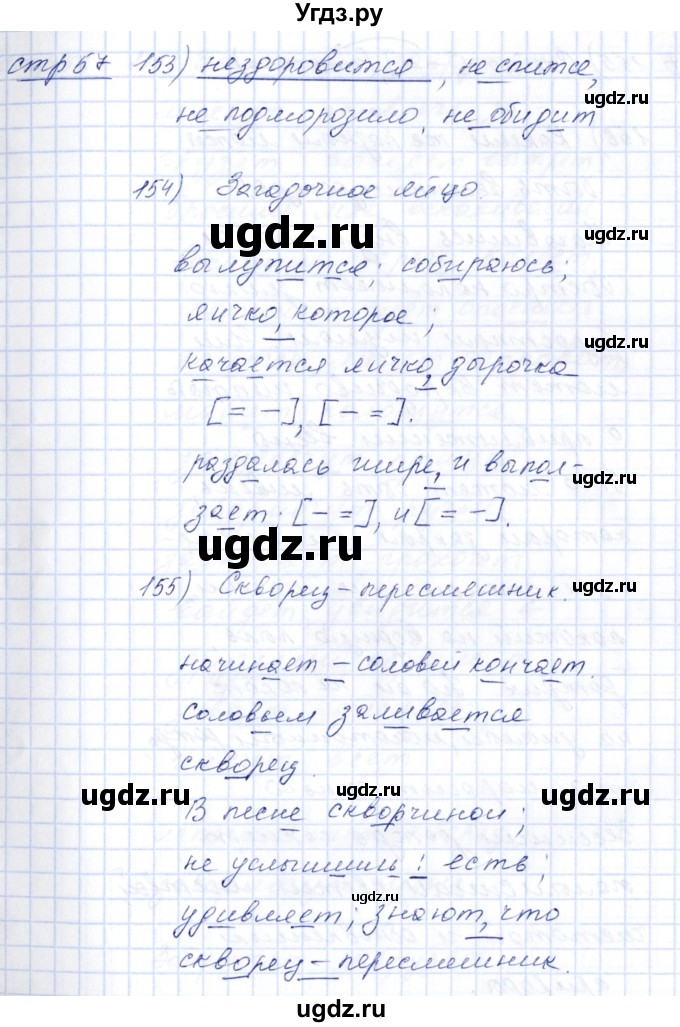 Угдз.ру
стр 67 153) нездоровится, не спится,
ugdz.ru
не подморозило, не обидит
154) Загадочное яйцо.
ugdz.ru ugdz.ru
вылупится; собираюсь;
яичко, которое;
качается яичко, дырочка
ugdz.ru
[= –], [– =].
раздалась шире, и выпол-
ugdz.ru
зает. [– =], и [= –].
ugdz.ru
155) Скворец – пересмешник.
ugdz.ru
начинает – соловей кончает.
соловьем заливается
скворец.
ugdz.ru ugdz.ru ugdz.ru
В песне скворчиной;
не услышишь: есть;
ugdz.ru
удивляет; знают, что
скворец – пересмешник.
ugdz.ru
ugdz.ru